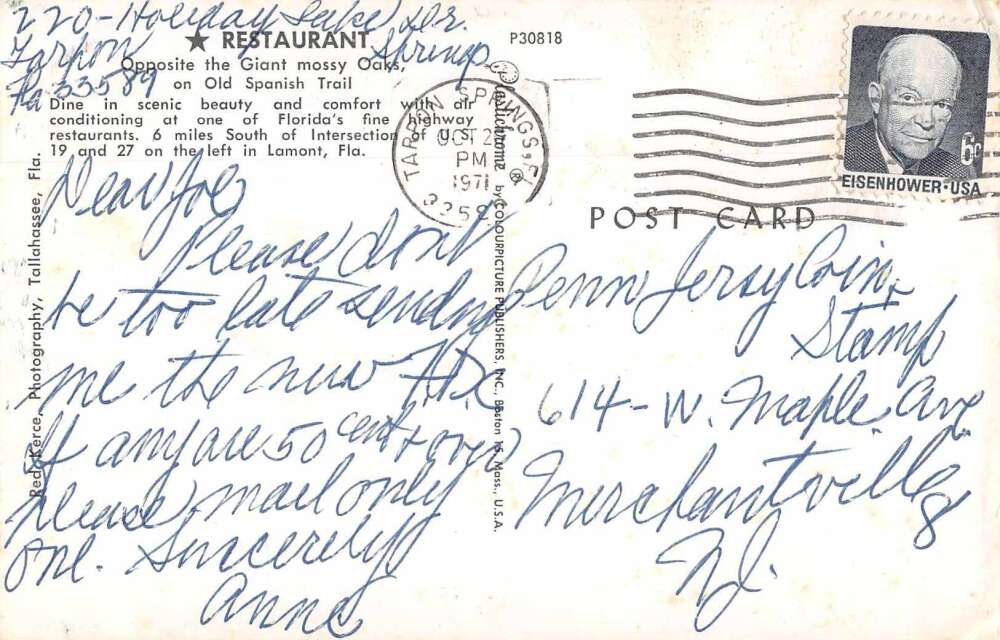 220-Holiday Lake Dr.
Tarpon Springs
Fla 33589
★ RESTAURANT
Opposite the Giant mossy Oaks,
on Old Spanish Trail
Dine in scenic beauty and comfort with air
conditioning at one of Florida's fine highway
restaurants. 6 miles South of Intersection of U.S.
19 and 27 on the left in Lamont, Fla.
Red Kerce, Photography, Tallahassee, Fla.
Dear Joe
Please don't
be too late sending
me the new F.D.C
If any are 50 cent & over
Please mail only
one. Sincerely
Anne
P30818
Plastichrome ® by COLOURPICTURE PUBLISHERS, INC., Boston 15, Mass., U.S.A.
TARPON SPRINGS, FL
OCT 2
PM
1971
3358
6c
EISENHOWER·USA
POST CARD
Penn Jersy Coin &
Stamp
614-W. Maple Ave
Merchantville
N.J.